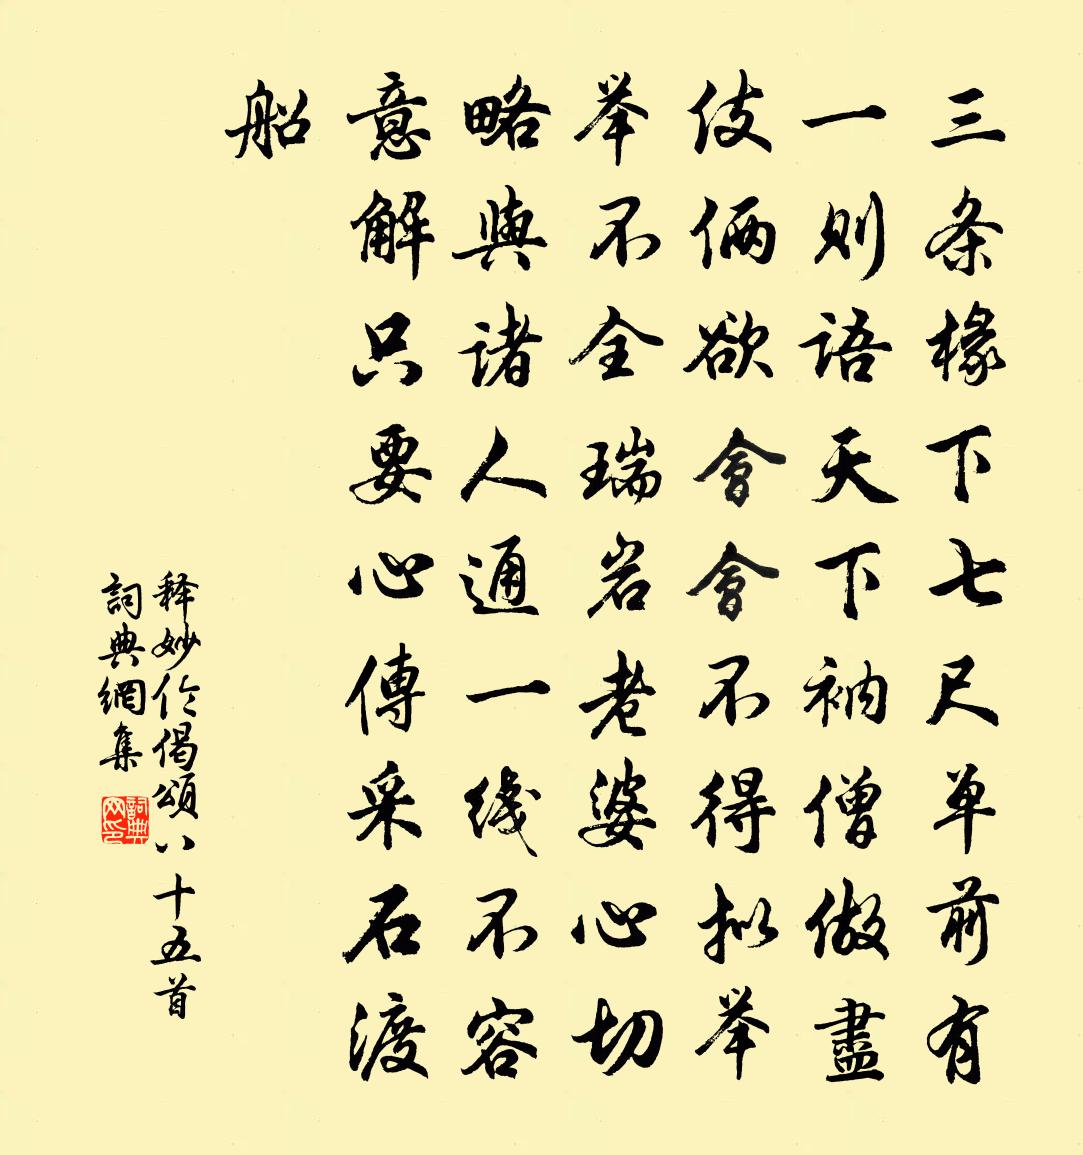 三条椽下七尺单前有
一则语天下衲僧做盡
伎俩欲會會不得拟举
举不全瑞岩老婆心切
略與诸人通一线不容
意解只要心傳采石渡
船
释妙伦偈頌八十五首
詞典網集
詞典网印